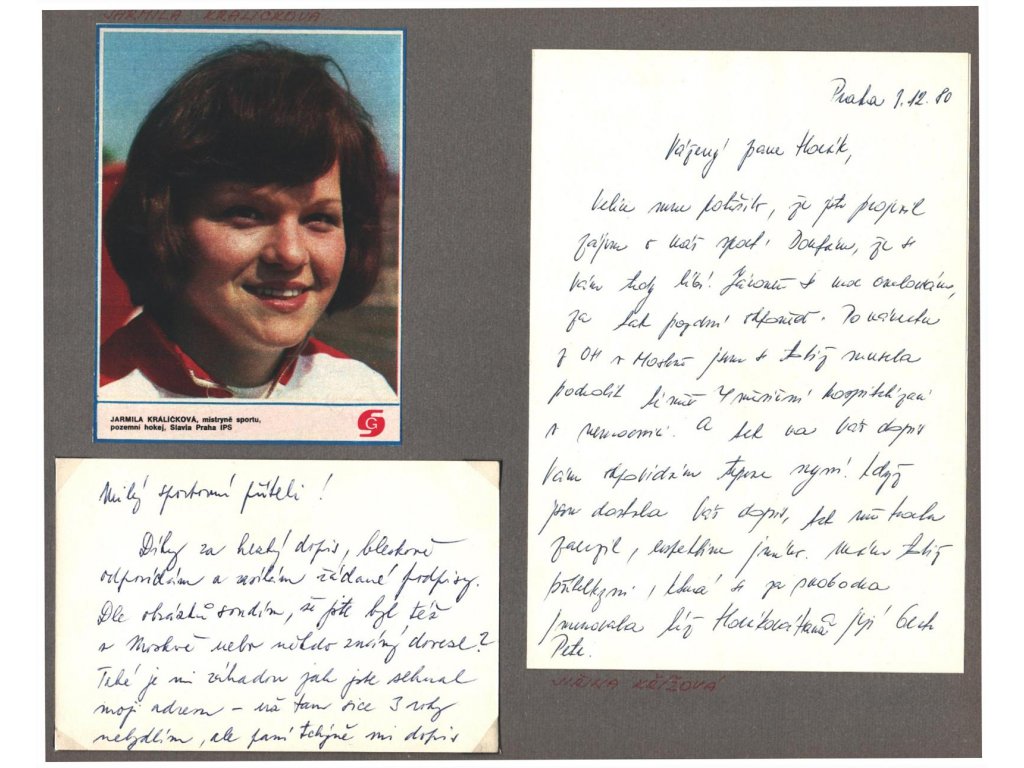 JARMILA KRÁLÍČKOVÁ
JARMILA KRÁLÍČKOVÁ, mistryně sportu,
pozemní hokej, Slavia Praha IPS
G
Milý sportovní příteli!
Díky za hezký dopis, bleskově
odpovídám a zasílám žádané podpisy.
Dle obrázků soudím, že jste byl též
v Moskvě nebo někdo známý dovezl?
Také je mi záhadou jak jste sehnal
moji adresu – už tam sice 3 roky
nebydlím, ale paní tchýně mi dopis
Praha 1.12.80
Vážený pane Horák,
velice mne potěšilo, že jste projevil
zájem o náš sport. Doufám, že se
Vám tedy líbí! Zároveň se moc omlouvám,
za tak pozdní odpověď. Po návratu
z OH v Moskvě jsem se totiž musela
podrobit téměř 4 měsíční hospitalizaci
v nemocnici. A tak na Váš dopis
Vám odpovídám teprve nyní. Když
jsem dostala Váš dopis, tak mě trochu
zarazil, respektive jméno. Mám totiž
přítelkyni, která se za svobodna
jmenovala též Horáková Hana její bech
Petr.
JIŘINA KŘÍŽOVÁ